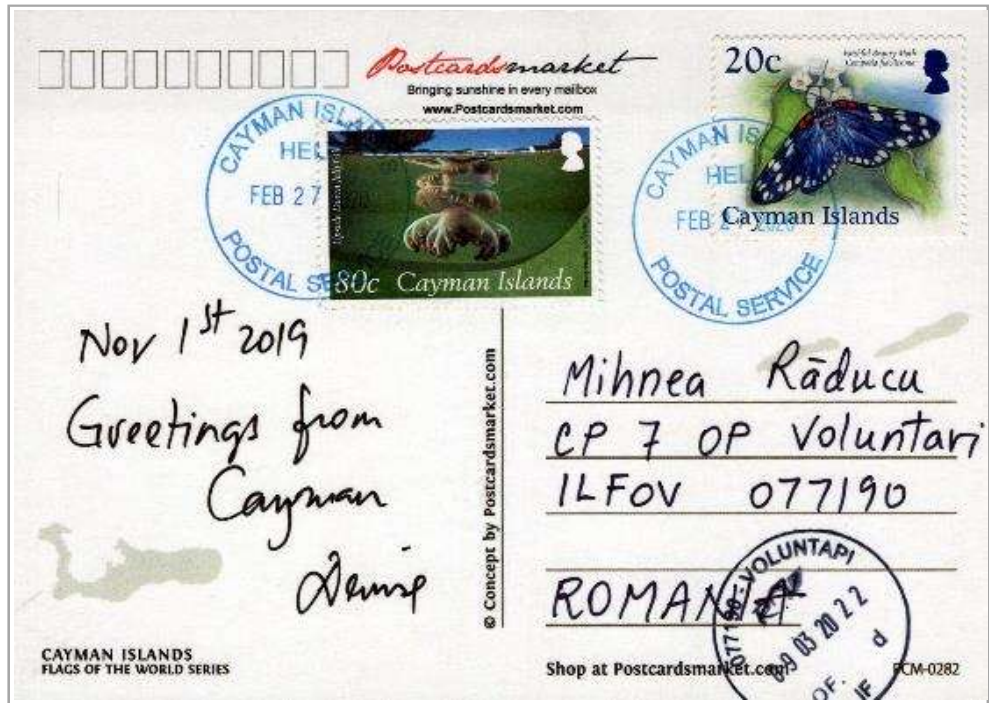 Postcardsmarket
Bringing sunshine in every mailbox
www.Postcardsmarket.com
20c
Cayman Islands
CAYMAN IS
HEL
FEB 27 2020
POSTAL SERVICE
CAYMAN ISLA
HEL
FEB 27
POSTAL SE
80c Cayman Islands
Nov 1st 2019
Greetings from
Cayman
Denise
© Concept by Postcardsmarket.com
Mihnea Răducu
CP 7 OP Voluntari
ILFOV 077190
ROMANIA
077190-VOLUNTARI
09 03 20 22
d
OF.
IF
CAYMAN ISLANDS
FLAGS OF THE WORLD SERIES
Shop at Postcardsmarket.com
PCM-0282